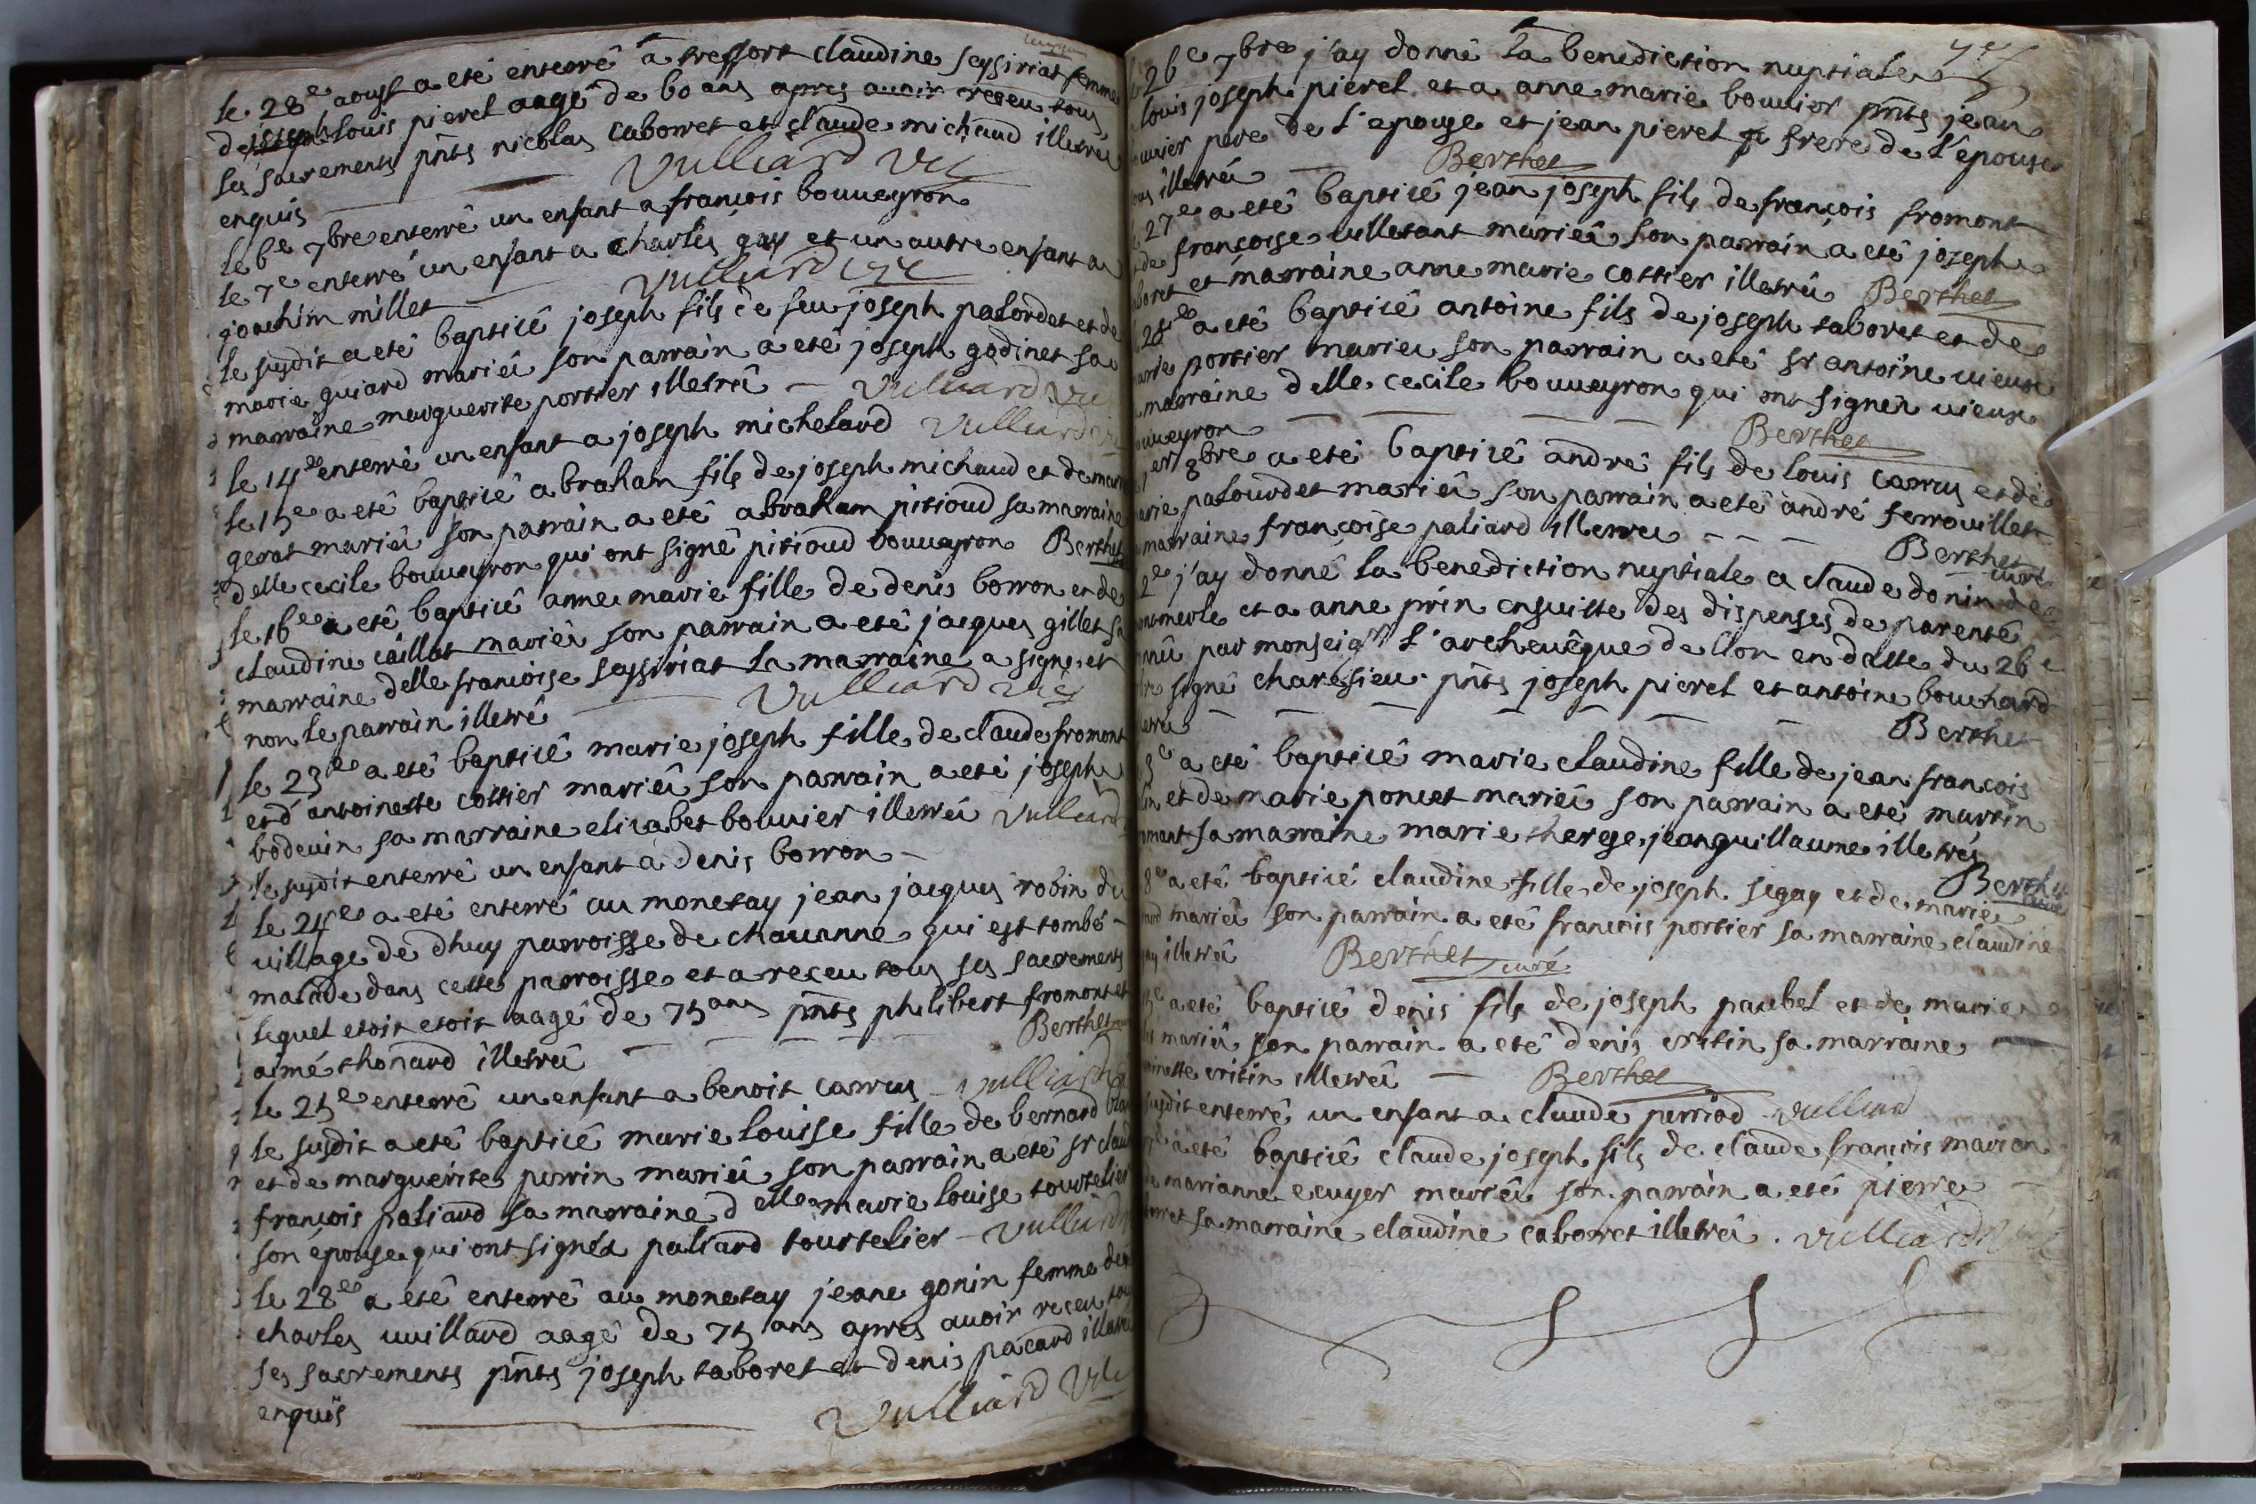 le 28e aoust a eté enterré a tressort claudine seysiriat femme
de louis pierel aagé de 60 ans apres avoir receu tous
ses sacrements pnts nicolas caborret et claude michaud illetrés
enquis Vulliard
le 6e 7bre enterré un enfant a francois bouveyron
le 7e enterré un enfant a charles gay et un autre enfant a
joachim millet Vulliard
le susdit a eté baptisé joseph fils de feu joseph palordet et de
marie guiard mariés son parrain a eté joseph godinet sa
marraine marguerite portier illetrés Vulliard
le 14e enterré un enfant a joseph michelard Vulliard
le 15e a eté baptisé abraham fils de joseph michaud et de marie
gerat mariés son parrain a eté abraham pitioud sa marraine
delle cecile bouveyron qui ont signé pitioud bouveyron Berthet
le 16e a eté baptisé anne marie fille de denis borron et de
claudine caillat mariés son parrain a eté jacques gillet sa
marraine delle francoise seysiriat la marraine a signé et
non le parrain illetré Vulliard
le 23e a eté baptisé marie joseph fille de claude fromont
et d'antoinette cottier mariés son parrain a eté joseph
bodevin sa marraine elizabet bouvier illetrés Vulliard
le susdit enterré un enfant a denis borron
le 24e a eté enterré au monetay jean jacques robin du
village de dhuy parroisse de chavanne qui est tombé
malade dans cette parroisse et a receu tous ses sacrements
lequel etoit etoit aagé de 75 ans pnts philibert fromont et
aimé thonard illetrés Berthet
le 25e enterré un enfant a benoit carrus Vulliard
le susdit a eté baptisé marie louise fille de bernard
et de marguerite perrin mariés son parrain a eté sr claude
francois paliard sa marraine delle marie louise tourtelier
son épouse qui ont signés paliard tourtelier Vulliard
le 28e a eté enterré au monetay jeane gonin femme de
charles vuillard aagé de 75 ans apres avoir receu tous
ses sacrements pnts joseph taboret et denis pacard illetrés
enquis Vulliard
26e 7bre j'ay donné la benediction nuptiale a
louis joseph pierel et a anne marie bouvier pnts jean
bouvier pere de l'epouse et jean pierel frere de l'épouse
tous illetrés Berthet
27e a eté baptisé jean joseph fils de françois fromont
et de françoise vulletant mariés son parrain a eté joseph
taboret et marraine anne marie cottier illetrés Berthet
28e a eté baptisé antoine fils de joseph taboret et de
marie portier mariés son parrain a eté sr antoine vieux
marraine delle cecile bouveyron qui ont signés vieux
bouveyron Berthet
1er 8bre a eté baptisé andré fils de louis carrus et de
marie palourdet mariés son parrain a eté andré ferrouillet
marraine françoise paliard illetrés Berthet curé
2e j'ay donné la benediction nuptiale a claude donin de
montmerle et a anne prin ensuitte des dispenses de parenté
par monseigr l'archevêque de lion en datte du 26e
signé charesieu pnts joseph pierel et antoine bouchard
illetrés Berthet
a eté baptisé marie claudine fille de jean françois
et de marie poncet mariés son parrain a eté martin
sa marraine marie therese jeanguillaume illetrés
Berthet curé
8e a eté baptisé claudine fille de joseph segay et de marie
mariés son parrain a eté francois portier sa marraine claudine
illetrés Berthet curé
a eté baptisé denis fils de joseph paubel et de marie
mariés son parrain a eté denis critin sa marraine
critin illetrés Berthet
susdit enterré un enfant a claude perriod Vulliard
a eté baptisé claude joseph fils de claude francois marion
marianne ecuyer mariés son parrain a eté pierre
sa marraine claudine caborret illetrés. Vulliard